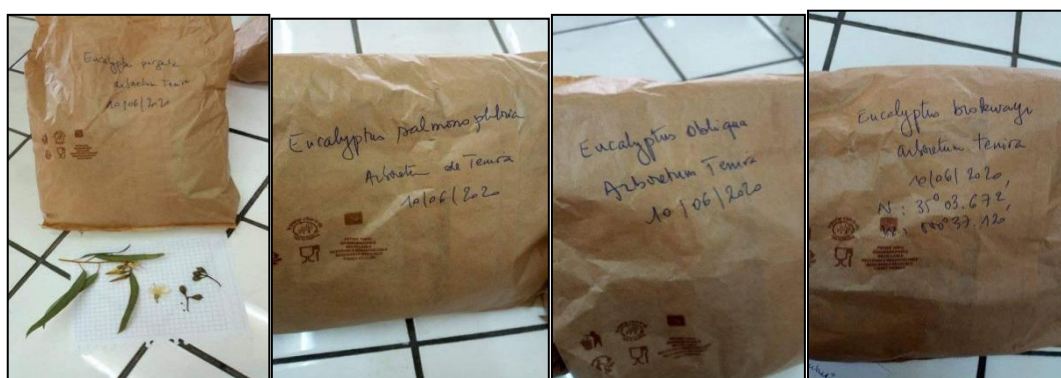 Eucalyptus
arboretum Tenira
10/06/2020
Eucalyptus salmonophloia
Arboretum de Tenira
10/06/2020
Eucalyptus obliqua
Arboretum Tenira
10/06/2020
Eucalyptus brokwayi
arboretum tenira
10/06/2020,
N: 35° 03.672,
W: 000° 37.120